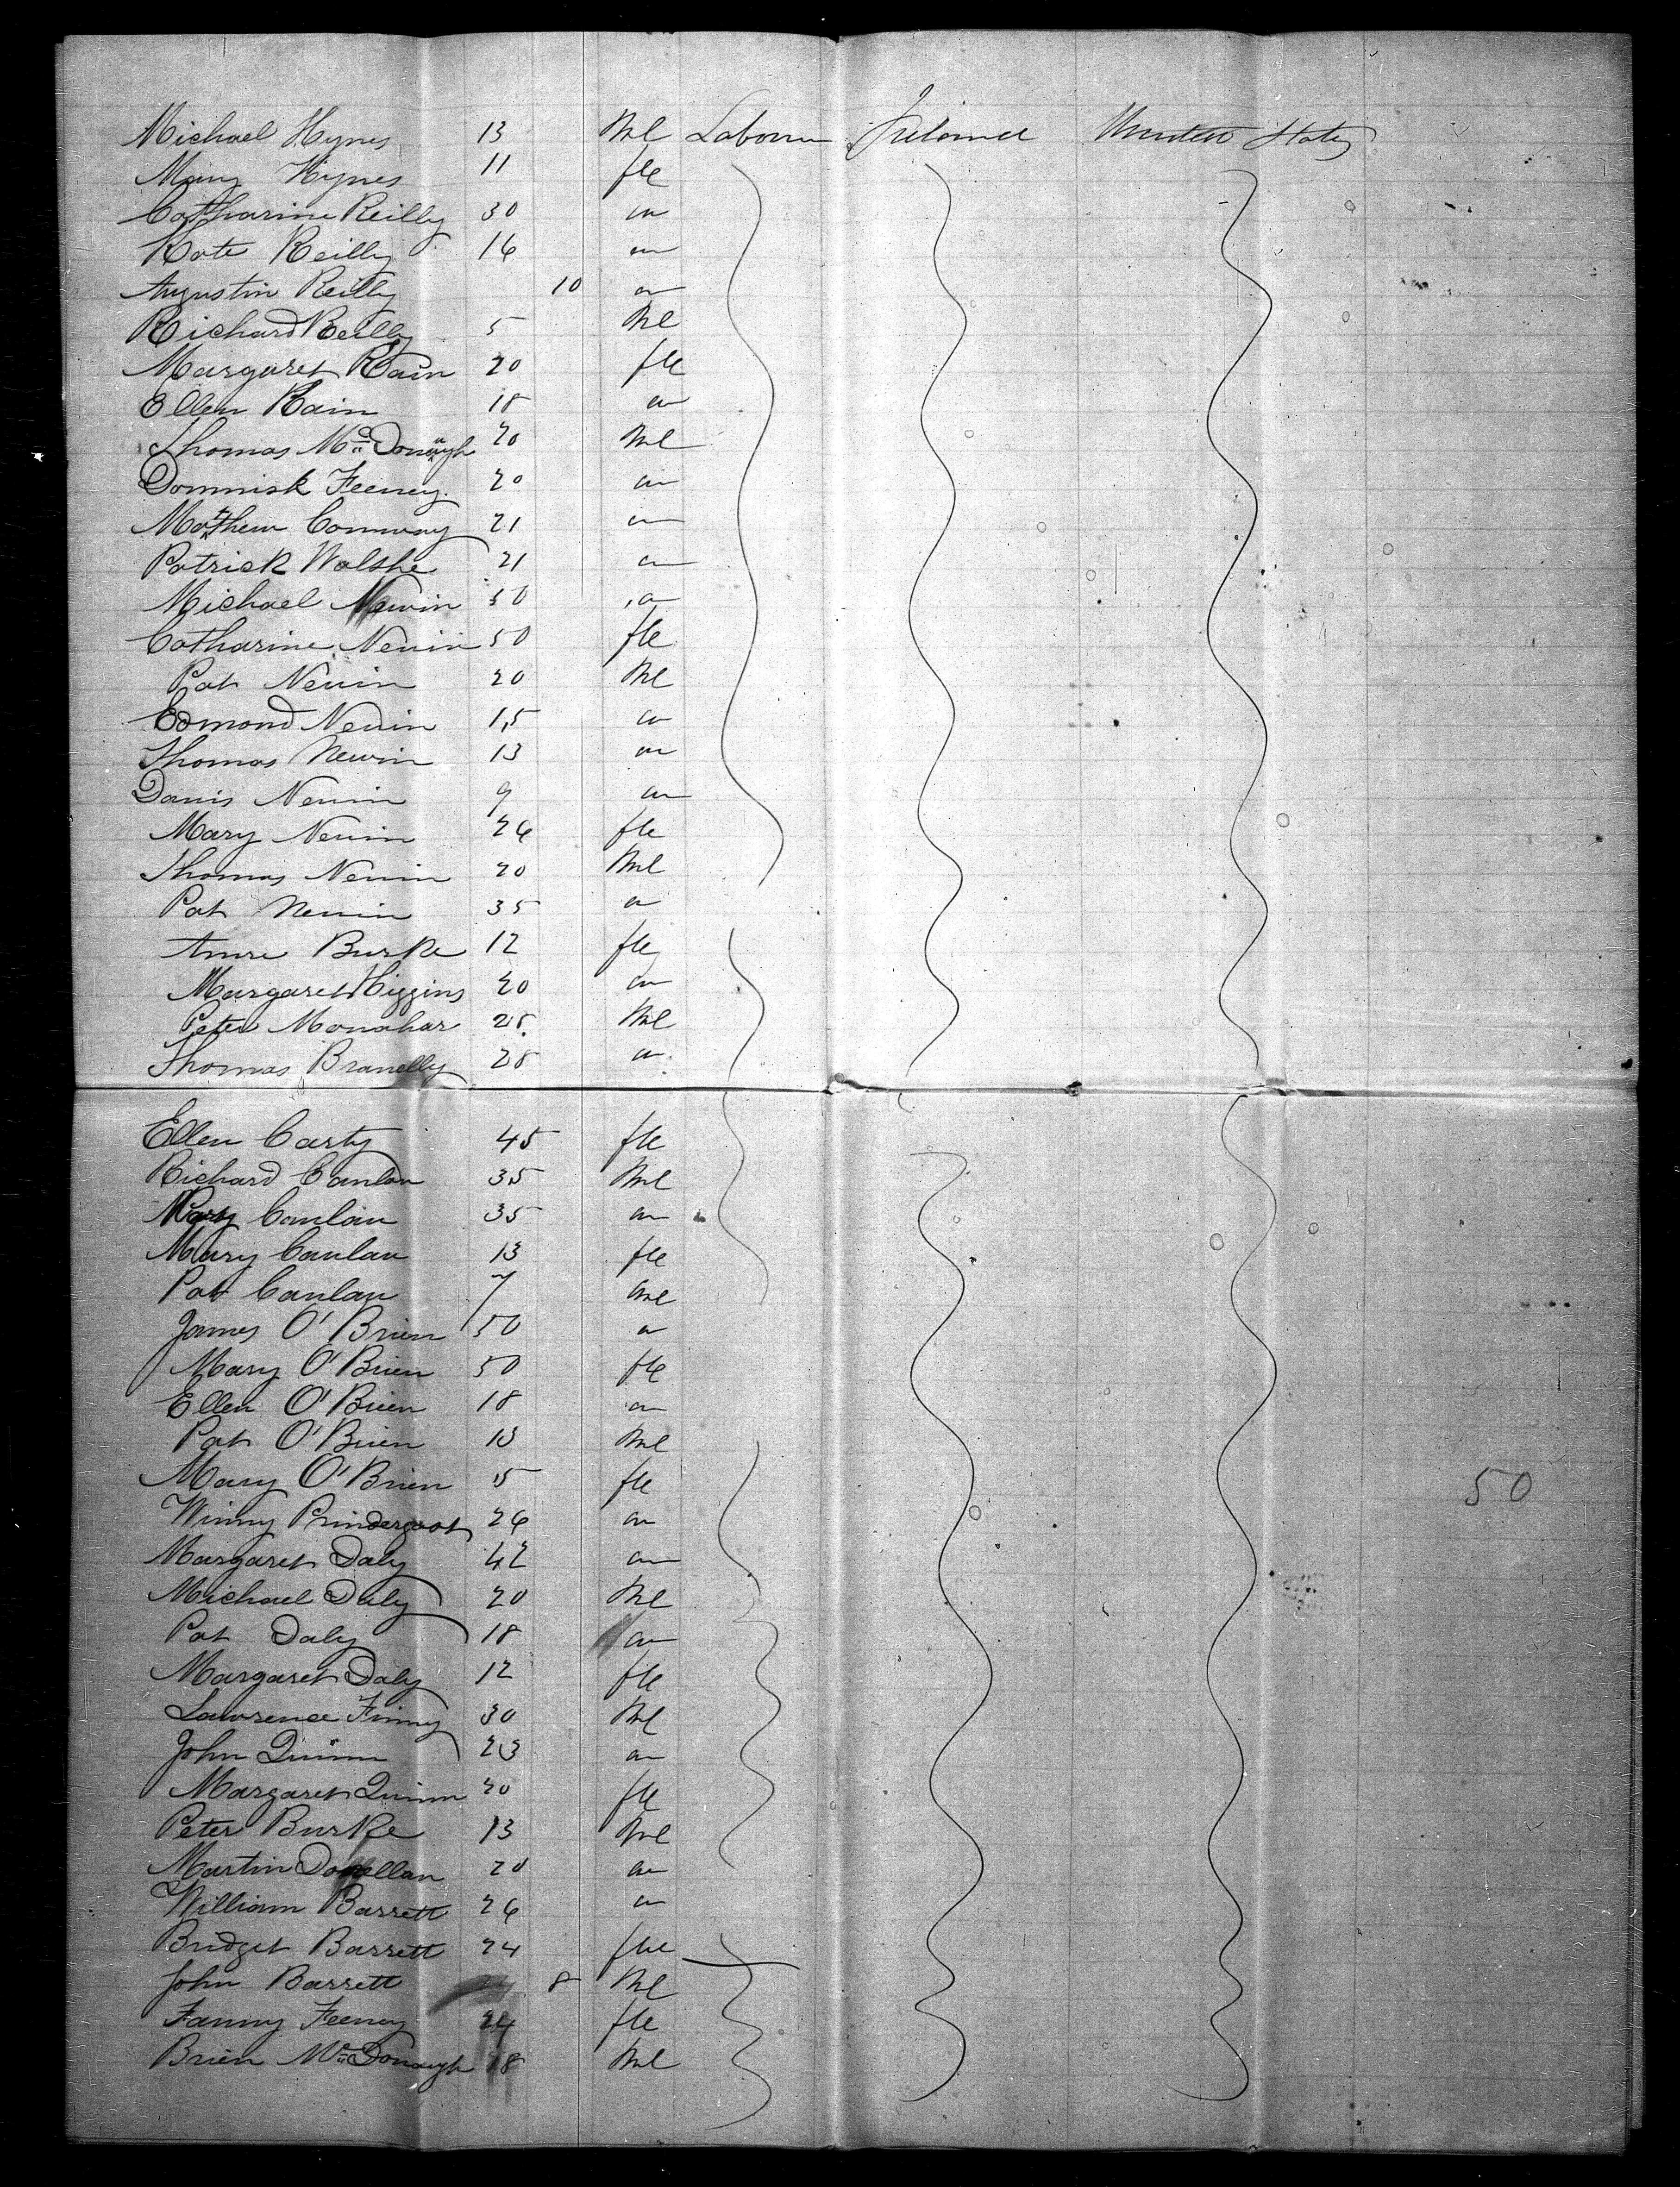 Michael Hynes 13 Ml Labourer Ireland United States
Mary Hynes 11 fle
Catharine Reilly 30 "
Kate Reilly 16 "
Augustin Reilly 10 "
Richard Reilly 5 Ml
Margaret Kain 20 fle
Ellen Kain 18 "
Thomas McDonaugh 20 Ml
Domnisk Feeney. 20 "
Matthew Connway 21 "
Patrick Walshe 21 "
Michael Nevin 50 "
Catharine Nevin 50 fle
Pat Nevin 20 Ml
Edmond Nevin 15 "
Thomas Nevin 13 "
Danis Nevin 9 "
Mary Nevin 26 fle
Thomas Nevin 20 Ml
Pat Nevin 35 "
Anne Burke 12 fle
Margaret Higgins 20 "
Peter Monahar 25 Ml
Thomas Branelly 28 "
Ellen Carty 45 fle
Richard Canlan 35 Ml
Canlan 35 "
Mary Canlan 13 fle
Pat Canlan 7 Ml
James O'Brien 50 "
Mary O'Brien 50 fle
Ellen O'Brien 18 "
Pat O'Brien 13 Ml
Mary O'Brien 15 fle 50
Winny Prindergast 26 "
Margaret Daly 42 "
Michael Daly 20 Ml
Pat Daly 18 "
Margaret Daly 12 fle
Lawrence Finny 30 Ml
John Quinn 23 "
Margaret Quinn 20 fle
Peter Burke 13 Ml
Martin Donellan 20 "
William Barrett 26 "
Bridget Barrett 24 fle
John Barrett 8 Ml
Fanny Feeney 24 fle
Brien McDonaugh 18 Ml